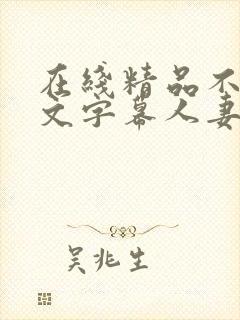 在綫精品不
文字幕人妻
吴兆生